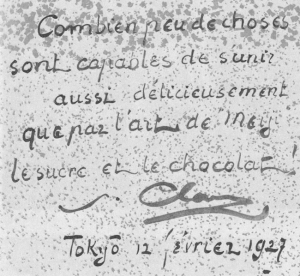 Combien peu de choses
sont capables de s'unir
aussi délicieusement
que par l'art de Meiji
le sucre et le chocolat!
Tokyō 12 février 1927